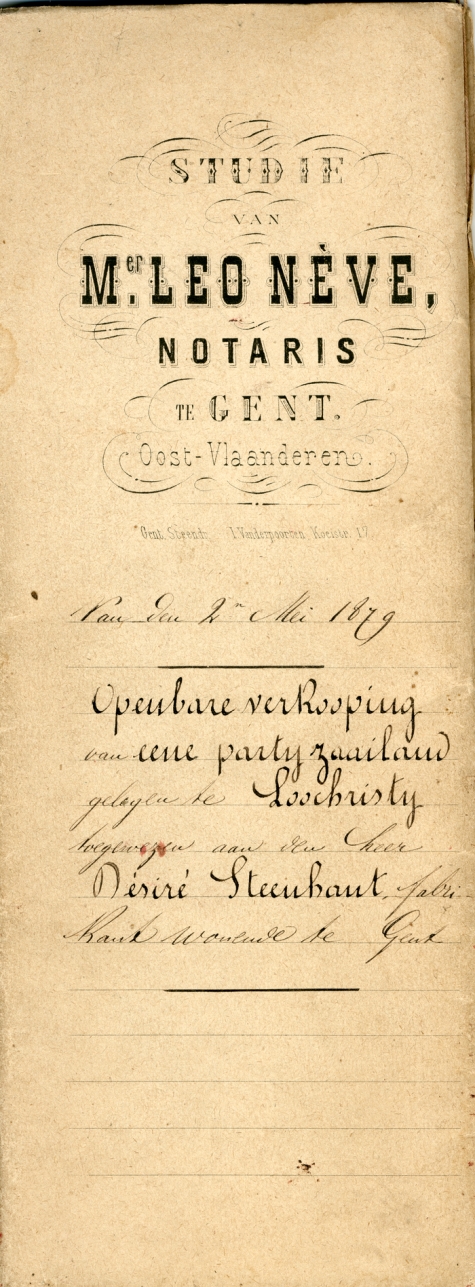 STUDIE
VAN
Mer. LEO NÈVE,
NOTARIS
TE GENT.
Oost-Vlaanderen.
Gent, Steendr. I. Vanderpoorten, Koeistr. 17
Van den 2n Mei 1879
Openbare verkooping
van eene party zaailand
gelegen te Loochristy
toegewezen aan den heer
Désiré Steenhaut, fabri-
kant wonende te Gent